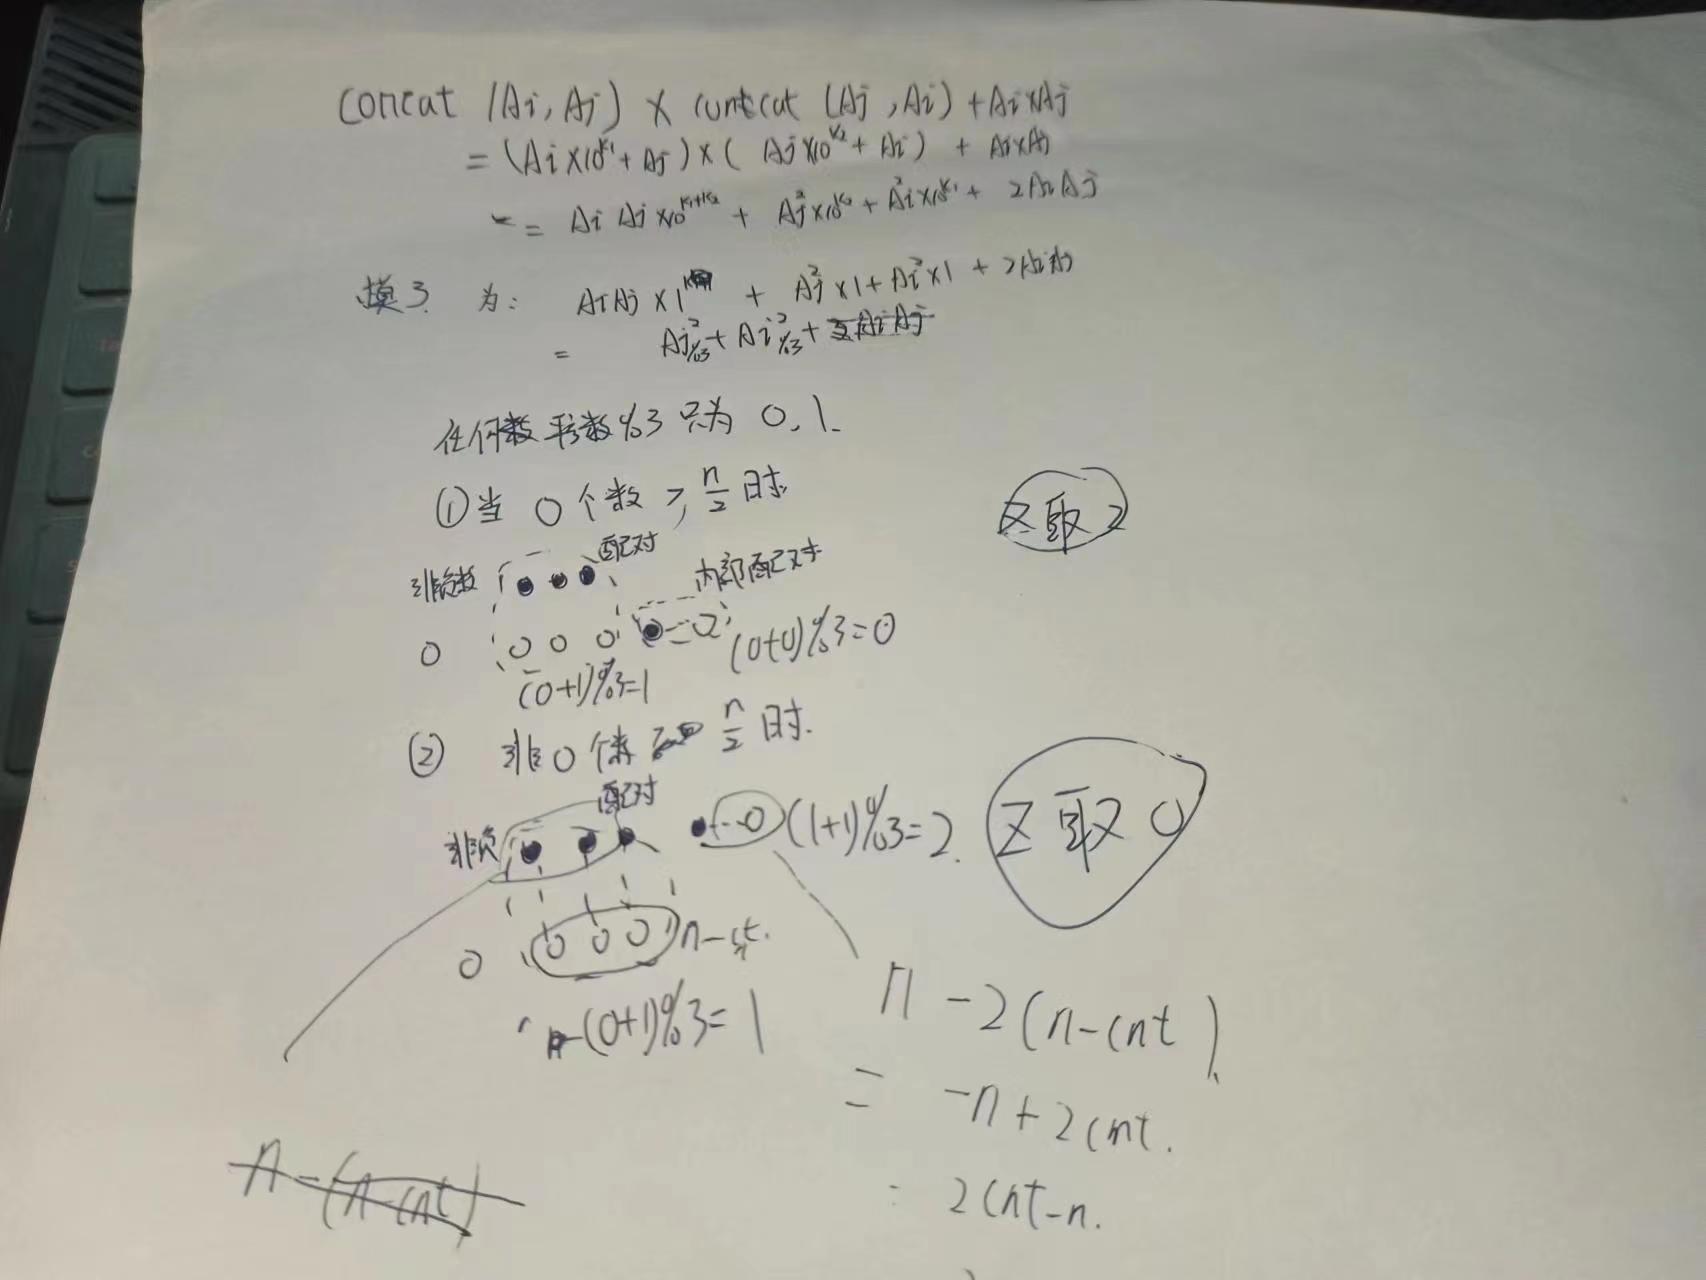 concat (Ai, Aj) × contcat (Aj, Ai) + Ai×Aj
= (Ai×10^k1 + Aj) × ( Aj×10^k2 + Ai) + Ai×Aj
= Ai Aj ×10^k1+k2 + Aj²×10^k2 + Ai²×10^k1 + 2AiAj
模3 为: AiAj ×1 + Aj²×1 + Ai²×1 + 2AiAj
= Aj²%3 + Ai²%3 +
任何数 平方数 %3 只为 0, 1.
①当 0个数 ≥ n/2 时
Z取2
配对
内部配对
0 0 0 0 0 (0+0)%3=0
(0+1)%3=1
② 非0个数 n/2 时.
配对
0 (1+1)%3=2. Z取0
0 0 0 0 n-cnt.
(0+1)%3=1
n-2(n-cnt)
= -n+2cnt.
= 2cnt-n.
n-(n-cnt)